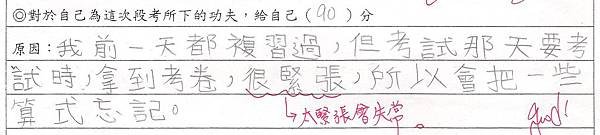 ◎對於自己為這次段考所下的功夫，給自己（90）分
原因：我前一天都複習過，但考試那天要考
試時，拿到考卷，很緊張，所以會把一些
算式忘記。
→太緊張會失常。
good!